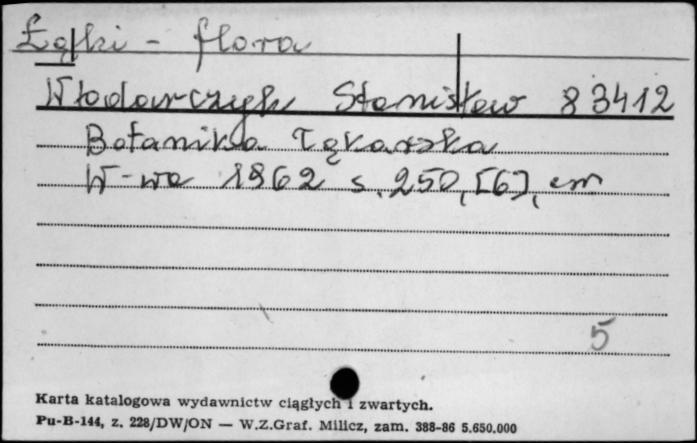 Łąki - flora
Włodarczyk Stanisław 83412
Botanika łąkarska
W-wa 1962 s. 250, [6],
5
Karta katalogowa wydawnictw ciągłych i zwartych.
Pu-B-144, z. 228/DW/ON — W.Z.Graf. Milicz, zam. 388-86 5.650.000